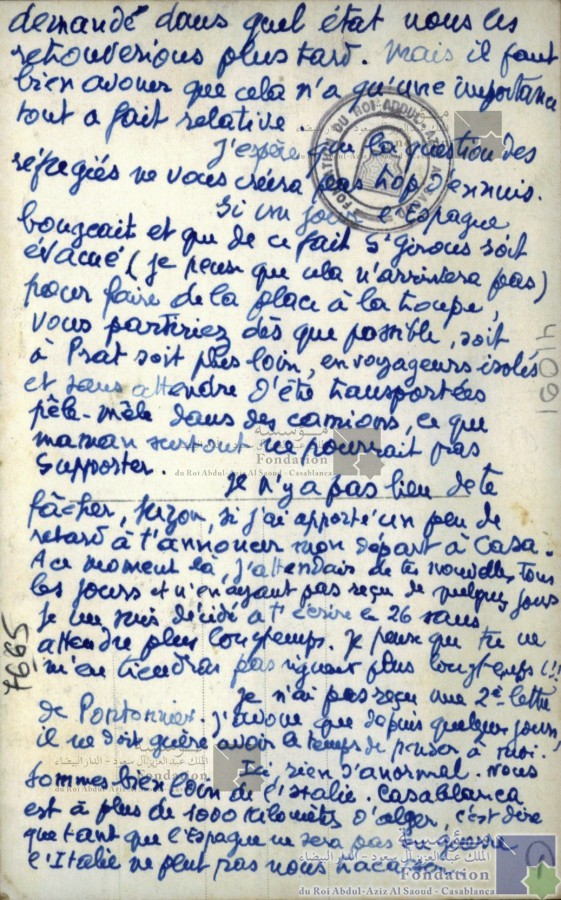 demandé dans quel état nous les
retrouverions plus tard. Mais il faut
bien avouer que cela n'a qu'une importance
tout a fait relative.
J'espère que la question des
réfugiés ne vous créera pas trop d'ennuis.
Si un jour l'Espagne
bougeait et que de ce fait St Girons soit
évacué (je pense que cela n'arrivera pas)
pour faire de la place à la troupe,
vous partiriez dès que possible, soit
à Prat soit plus loin, en voyageurs isolés
et sans attendre d'être transportées
pêle-mêle dans des camions, ce que
maman surtout ne pourrait pas
supporter.
Je n'y a pas lieu de te
fâcher, Suzon, si j'ai apporté un peu de
retard à t'annoncer mon départ à Casa.
A ce moment là, j'attendais de tes nouvelles tous
les jours et n'en ayant pas reçu de quelques jours
je me suis décidé à t'écrire le 26 sans
attendre plus longtemps. Je pense que tu ne
m'en tiendras pas rigueur plus longtemps !!!
Je n'ai pas reçu une 2e lettre
de Pontonnier. J'avoue que depuis quelques jours
il ne doit guère avoir le temps de penser à moi.
Ici, rien d'anormal. Nous
sommes bien loin de l'Italie. Casablanca
est à plus de 1000 kilomèts d'alger, c'est dire
que tant que l'Espagne ne sera pas en guerre
l'Italie ne peut pas nous
16014
7665
FONDATION DU ROI ABDUL-AZIZ
CASABLANCA
مؤسسة
الملك عبد العزيز آل سعود - الدار البيضاء
Fondation
du Roi Abdul-Aziz Al Saoud - Casablanca